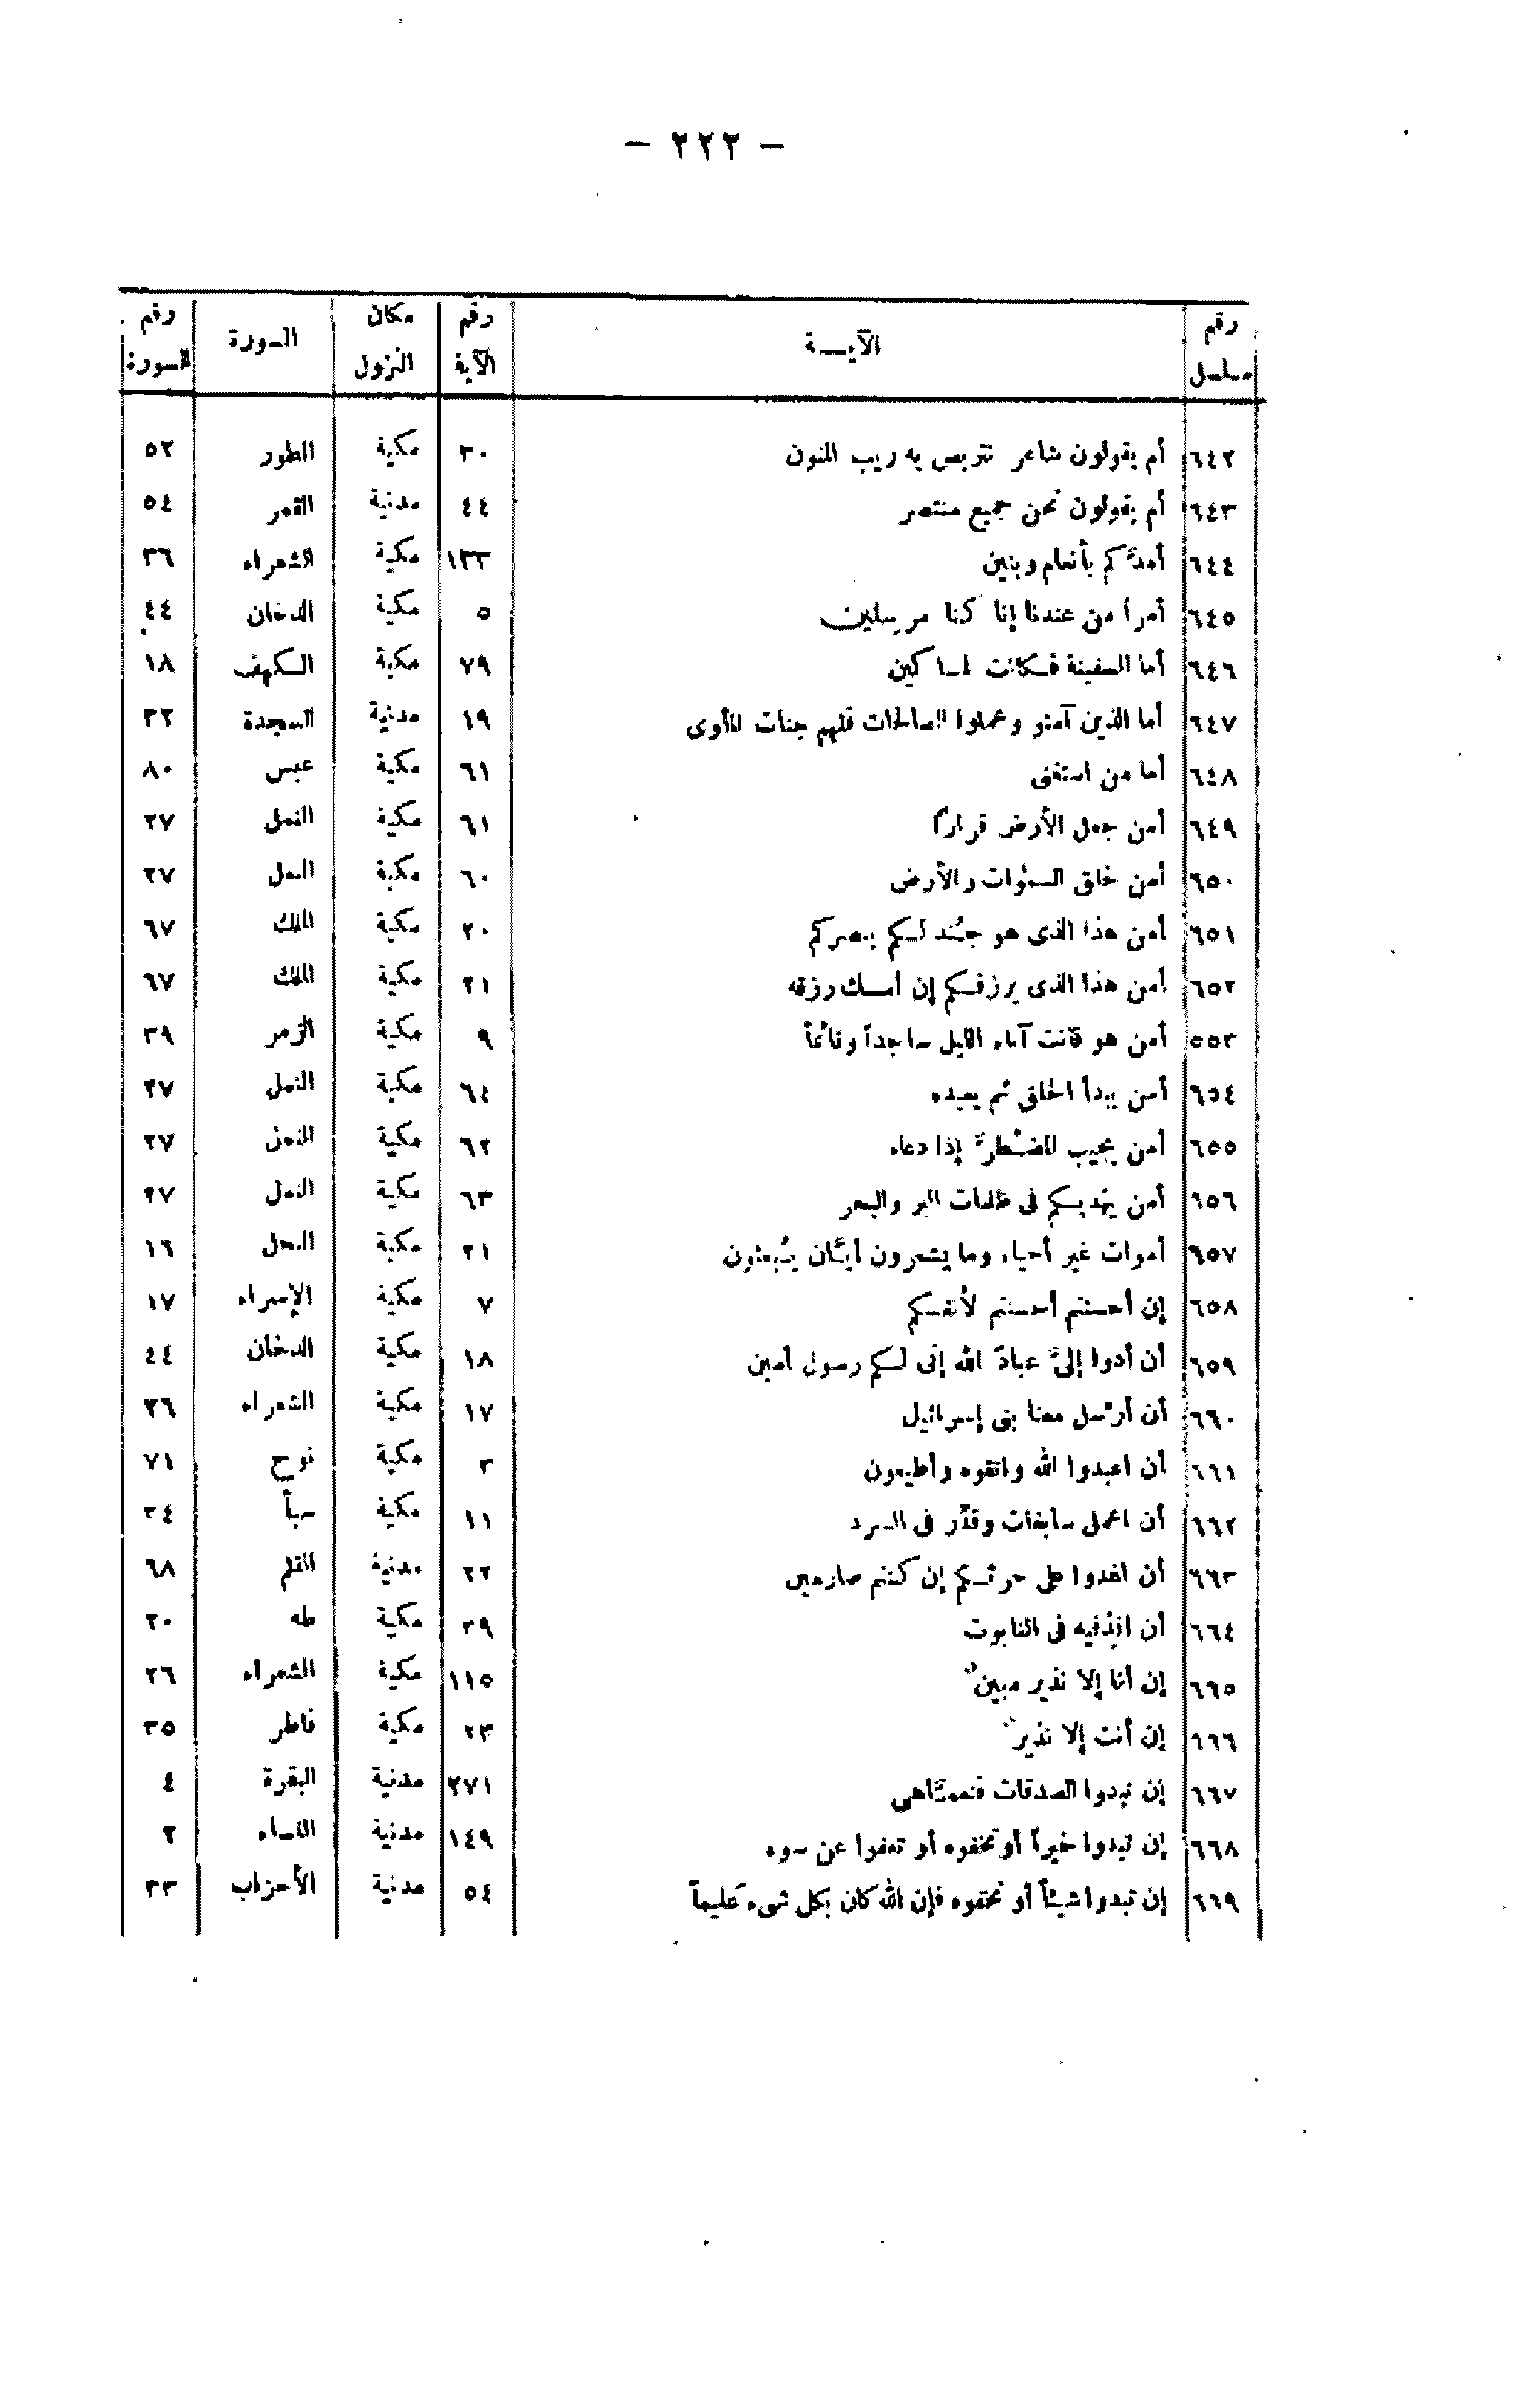 — ٢٢٢ —
رقم مسلسل الآيــة رقم الآية مكان النزول السورة رقم السورة
٦٤٢ أم يقولون شاعر نتربص به ريب المنون ٣٠ مكية الطور ٥٢
٦٤٣ أم يقولون نحن جميع منتصر ٤٤ مدنية القمر ٥٤
٦٤٤ أمدَّكم بأنعام وبنين ١٣٣ مكية الشعراء ٢٦
٦٤٥ أمراً من عندنا إنا كنا مرسلين ٥ مكية الدخان ٤٤
٦٤٦ أما السفينة فكانت لمساكين ٧٩ مكية الكهف ١٨
٦٤٧ أما الذين آمنو وعملوا الصالحات فلهم جنات المأوى ١٩ مدنية السجدة ٣٢
٦٤٨ أما من استغنى ٦١ مكية عبس ٨٠
٦٤٩ أمن جعل الأرض قراراً ٦١ مكية النمل ٢٧
٦٥٠ أمن خلق السموات والأرض ٦٠ مكية النمل ٢٧
٦٥١ أمن هذا الذى هو جُند لكم ينصركم ٢٠ مكية الملك ٦٧
٦٥٢ أمن هذا الذى يرزقكم إن أمسك رزقه ٢١ مكية الملك ٦٧
٥٥٣ أمن هو قانت آناء الليل ساجداً وقائماً ٩ مكية الزمر ٣٩
٦٥٤ أمن يبدأ الخلق ثم يعيده ٦٤ مكية النمل ٢٧
٦٥٥ أمن يجيب المضْطرَّ إذا دعاه ٦٢ مكية النمل ٢٧
٦٥٦ أمن يهديكم فى ظلمات البر والبحر ٦٣ مكية النمل ٢٧
٦٥٧ أموات غير أحياء وما يشعرون أيَّان يُبعثون ٢١ مكية النحل ١٦
٦٥٨ إن أحسنتم أحسنتم لأنفسكم ٧ مكية الإسراء ١٧
٦٥٩ أن أدوا إلىَّ عبادَ الله إنى لكم رسول أمين ١٨ مكية الدخان ٤٤
٦٦٠ أن أرْسل معنا بنى إسرائيل ١٧ مكية الشعراء ٢٦
٦٦١ أن اعبدوا الله واتقوه وأطيعون ٣ مكية نوح ٧١
٦٦٢ أن اعمل سابغات وقدِّر فى السرد ١١ مكية سبأ ٣٤
٦٦٣ أن اغدوا على حرثكم إن كنتم صارمين ٢٢ مدنية القلم ٦٨
٦٦٤ أن اقذفيه فى التابوت ٣٩ مكية طه ٢٠
٦٦٥ إن أنا إلا نذير مبينٌ ١١٥ مكية الشعراء ٢٦
٦٦٦ إن أنت إلا نذيرٌ ٢٣ مكية فاطر ٣٥
٦٦٧ إن تبدوا الصدقات فنعمَّاهى ٢٧١ مدنية البقرة ٤
٦٦٨ إن تبدوا خيراً أو تخفوه أو تعفوا عن سوء ١٤٩ مدنية النساء ٢
٦٦٩ إن تبدوا شيئاً أو تخفوه فإن الله كان بكل شىء عليماً ٥٤ مدنية الأحزاب ٣٣